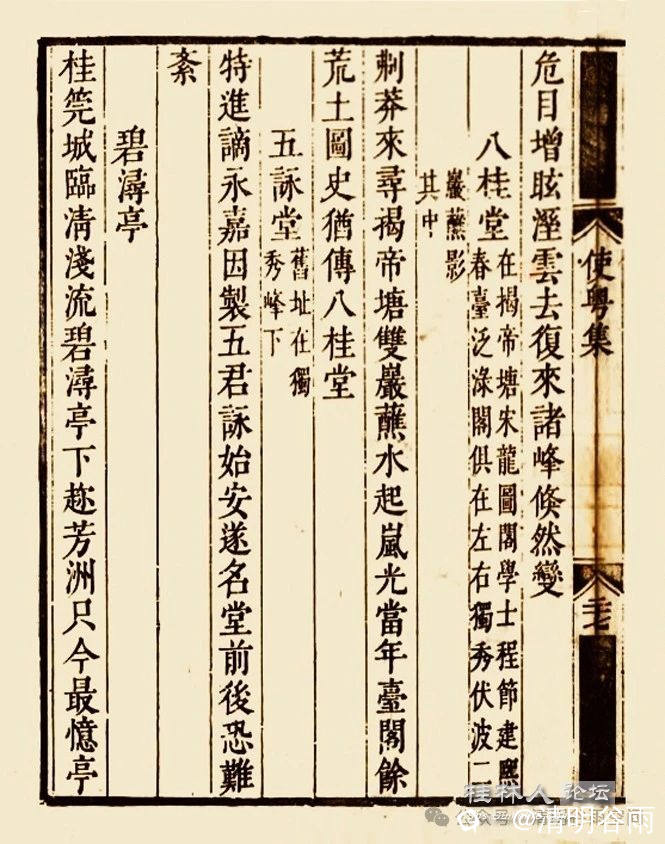 使粵集
危目增眩溼雲去復來諸峰倐然變
八桂堂
在揭帝塘宋龍圖閣學士程節建應
春臺泛淥閣俱在左右獨秀伏波二
巖蘸影
其中
莽來尋揭帝塘雙巖蘸水起嵐光當年臺閣餘
荒土圖史猶傳八桂堂
五詠堂
舊址在獨
秀峰下
特進謫永嘉因製五君詠始安遂名堂前後恐難
紊
碧潯亭
桂筦城臨淸淺流碧潯亭下趂芳洲只今最憶亭
桂林人论坛
@清明谷雨